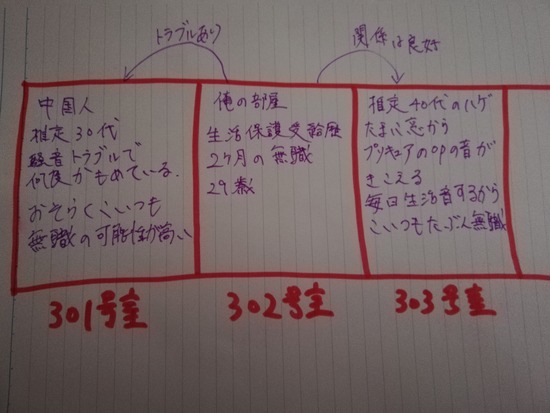 トラブルあり
関係は良好
中国人
推定30代
騒音トラブルで
何度かもめている.
おそらくこいつも
無職の可能性が高い
俺の部屋
生活保護受給歴
2ケ月の無職
29歳
推定40代のハゲ
たまに窓から
プリキュアのOPの音が
きこえる
毎日生活音するから
こいつもたぶん無職
301号室
302号室
303号室